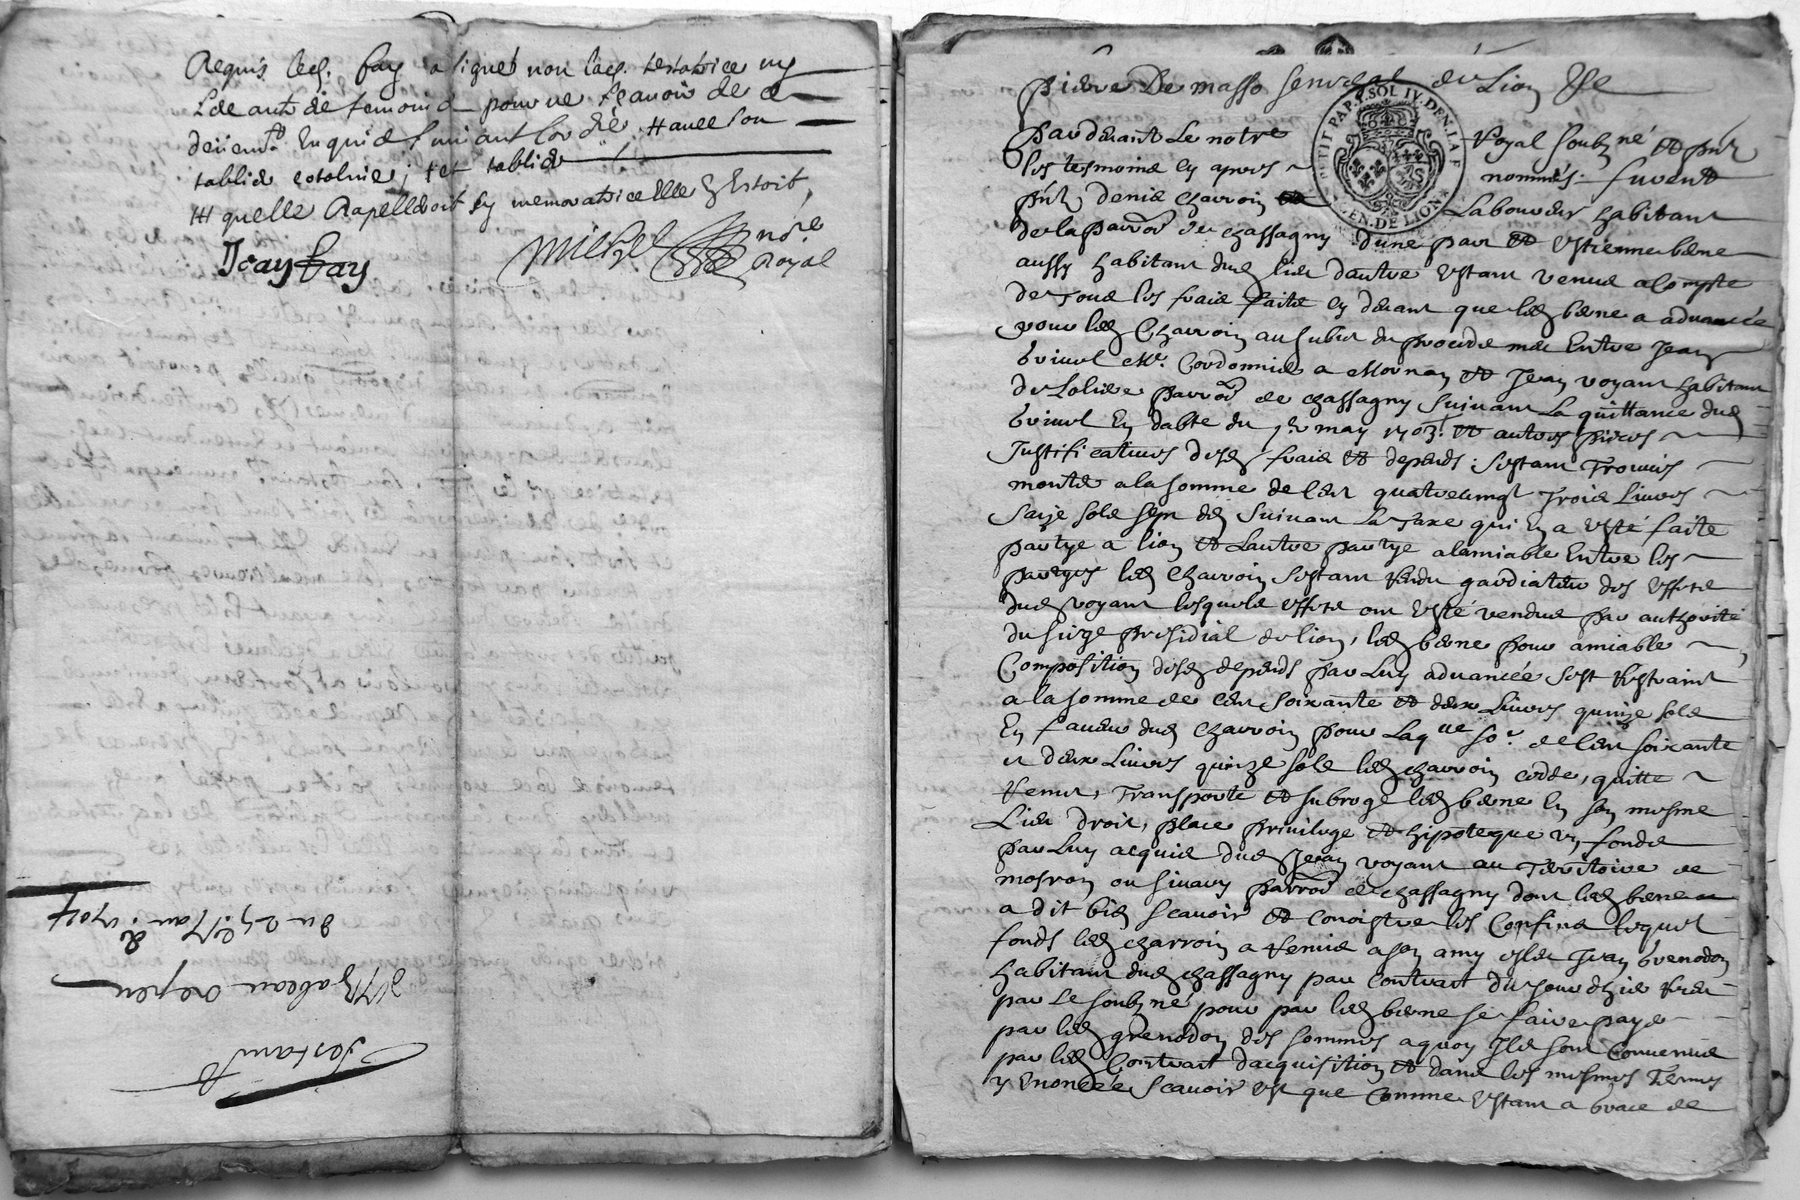 Requis led. fay a signet non lad. testatrice ny
de temoins pour ne sçavoir de ce
Enquis suivant
tablie
quelle Rapelleroit sy memoratrice Elle Estoit
Jean fay
michel no.re
Royal
du 25e Jan. 1704
d'Ysabeau
Testam.t
pierre De masso seneschal de Lion
PETIT PAP. P. SOL IV. DEN. LA F
GEN. DE LION
pardevant Le not.re Royal soubz.né et p.nt
les tesmoins cy apres nommés. furent
p.nt denis charroin Laboureur habitant
de la parro. de chassagny dune part et Estienne bene
aussy habitant dud. lieu dautre Estant venus a Compte
de Tous les frais faits cy devant que led. bene a advancée
pour led. Charroin au subiet du procedé meu Entre Jean
M.e Cordonnier a Mornan et Jean voyant habitant
de parro. de chassagny suivant La quittance dud.
En datte du may 1703. et autres pieces
Justificatives desd. frais et depends. sestant Trouvés
monter a la somme de Cent quatrevingt Trois Livres
Saize sols sept d. suivant La Taxe qui En a Esté faite
partye a lion et Lautre partye alamiable Entre les
partyes led. Charroin sestant Rendu gardiateur des Effets
dud. voyant lesquels Effets ont Esté vendus par authorité
du siege presidial de lion, led. bene pour amiable
Composition desd. depends par Luy advancée sest Restraint
a la somme de Cent soixante et deux Livres quinze sols
En faveur dud. Charroin pour Laq.lle so.e de Cent soixante
et deux Livres quinze sols led. charroin cedde, quitte
Remet, Transporte et subroge led. bene En son mesme
Lieu droit, place privilege et hipoteque un fonds
par Luy acquis dud. Jean voyant au Territoire de
ou sivary parro. de chassagny dont led. bene
a dit bien scavoir et Conoistre les Confins lequel
fonds led. charroin a Remis a son amy esleu Jean grenodon
habitant dud. chassagny par Contract du jourdhuy Receu
par Le soubz.né pour par led. bene se faire payer
par led. grenodon des sommes aquoy Ils sont Convenus
par led. Contract dacquisition et dans les mesmes Termes
y Enoncée scavoir Est que Comme Estant a grace de